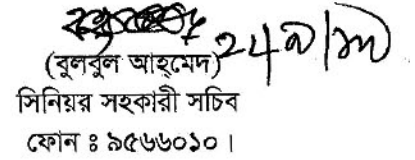 (বুলবুল আহমেদ)
সিনিয়র সহকারী সচিব
ফোন ঃ ৯৫৬৬০১০।